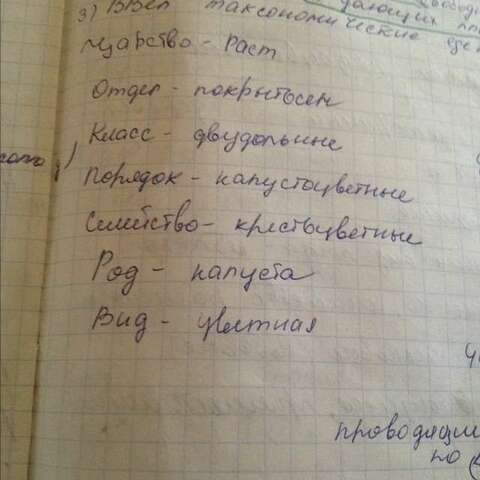 3) Ввел таксономические
Царство - Раст
Отдел - покрытосем
Класс - двудольные
Порядок - капустоцветные
Семейство - крестоцветные
Род - капуста
Вид - цветная
проводящие
по